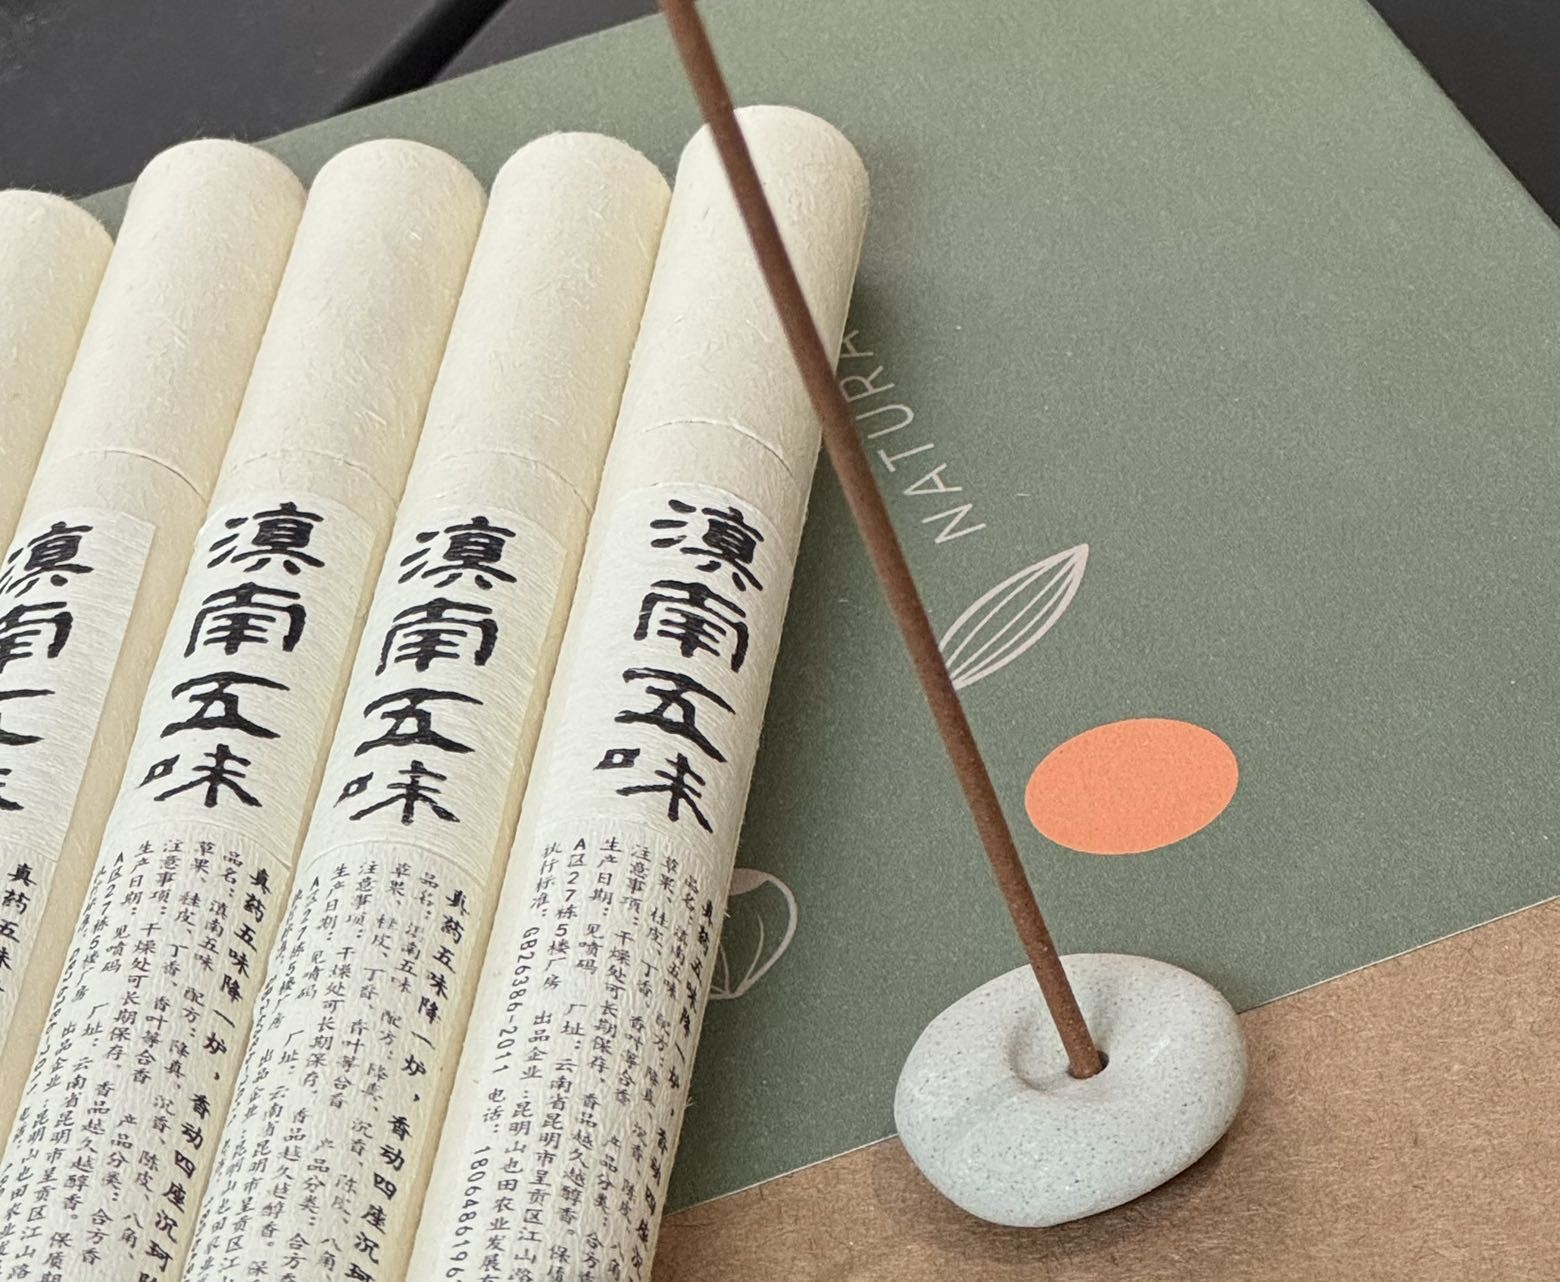 滇南五味
真药五味降一炉，香动四座沉珂
品名：滇南五味 配方：降真、沉香、陈皮、八角、
草果、桂皮、丁香、香叶等合香 产品分类：合方香
注意事项：干燥处可长期保存，香品越久越醇香。保质期
生产日期：见喷码 厂址：云南省昆明市呈贡区江山路
A区27栋5楼厂房 出品企业：昆明山也田农业发展有
执行标准：GB26386-2011 电话：1806486196
滇南五味
真药五味降一炉，香动四座沉珂
品名：滇南五味 配方：降真、沉香、陈皮、八角、
草果、桂皮、丁香、香叶等合香 产品分类：合方香
注意事项：干燥处可长期保存，香品越久越醇香。保质期
生产日期：见喷码 厂址：云南省昆明市呈贡区江山路
A区27栋5楼厂房 出品企业：昆明山也田农业
滇南五味
真药五味降一炉，香动四座沉珂降
品名：滇南五味 配方：降真、沉香、陈皮、八角、
草果、桂皮、丁香、香叶等合香 产品分类：合方香
注意事项：干燥处可长期保存，香品越久越醇香。保质期
生产日期：见喷码 厂址：云南省昆明市呈贡区江山路
A区27栋5楼厂房 出品企业：昆明山也田农业发展
滇南五味
真药五味
NATURA